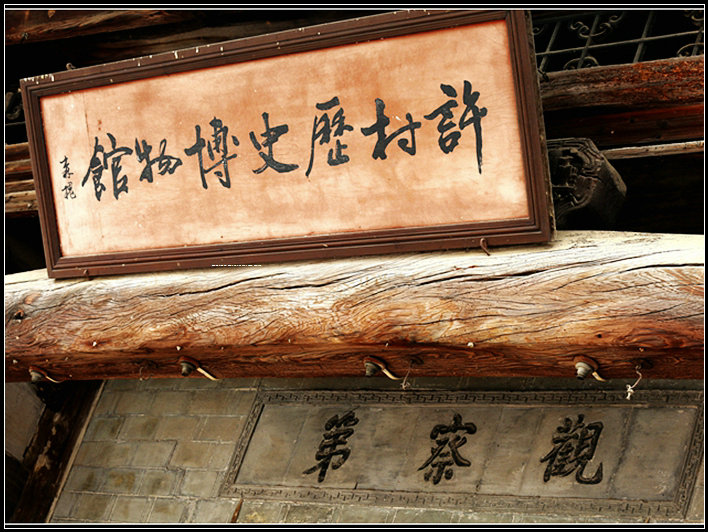 許村歷史博物館
觀察第